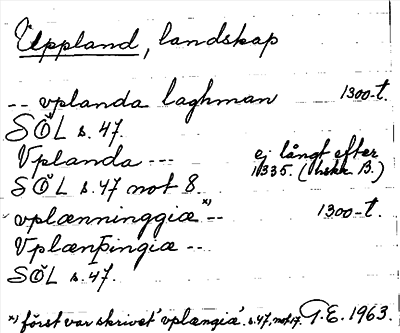 Uppland, landskap
-- vplanda laghman 1300-t.
SÖL s. 47.
Vplanda --- ej långt efter
SÖL s. 47 not 8. 1335. (hskr B.)
vplænninggiæ *) -- 1300-t.
Vplænþingiæ --
SÖL s. 47.
*) först var skrivet 'vplængiæ'. s. 47, not 17. G.E. 1963.